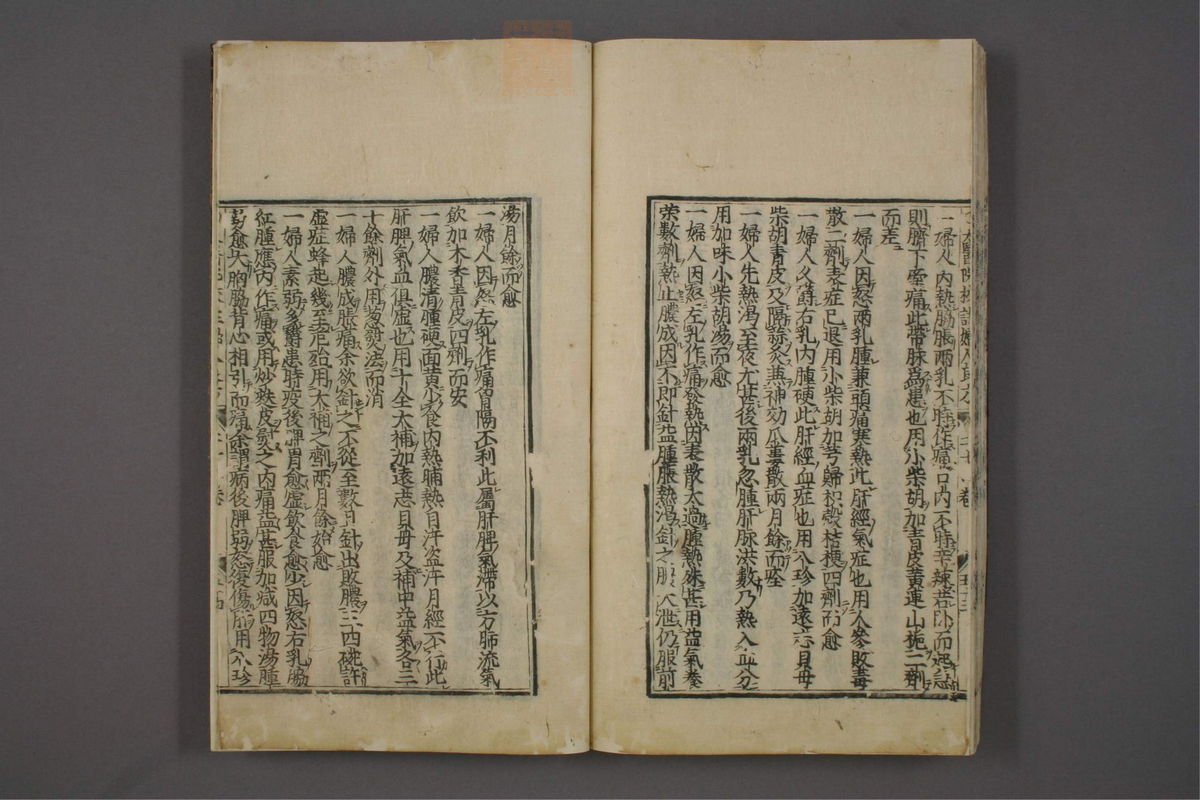 一婦人內熱脇脹兩乳不時作痛口內不時辛辣若臥而起急
則臍下牽痛此帶脉為患也用小柴胡加青皮黃連山梔二劑
而差
一婦人因怒兩乳腫兼頭痛寒熱此肝經氣症也用人參敗毒
散二劑表症已退用小柴胡加芎歸枳殼桔梗四劑而愈
一婦人久鬱右乳內腫硬此肝經血症也用八珍加遠志貝母
柴胡青皮及隔蒜灸兼神効瓜蔞散兩月餘而痊
一婦人先熱渴至夜尤甚後兩乳忽腫肝脉洪數乃熱入血分
用加味小柴胡湯而愈
一婦人因怒左乳作痛發熱因表散太過腫熱殊甚用益氣養
榮數劑熱止膿成因不即針益腫脹熱渴針之膿大泄仍服前
湯月餘而愈
一婦人因怒左乳作痛胷膈不利此屬肝脾氣滯以方肺流氣
飲加木香青皮四劑而安
一婦人膿清腫硬面黃少食內熱晡熱自汗盜汗月經不行此
肝脾氣血俱虛也用十全大補加遠志貝母及補中益氣各三
十餘劑外用葱熨法而消
一婦人膿成脹痛余欲針之不從至數日針出敗膿三四碗許
虛症蜂起幾至危殆用大補之劑兩月餘始愈
一婦人素弱多鬱患時疫後脾胃愈虛飲食愈少因怒右乳脇
紅腫應內作痛或用炒麩皮熨之內痛益甚服加减四物湯腫
勢愈大胸脇背心相引而痛余謂病後脾弱怒後傷肝用八珍